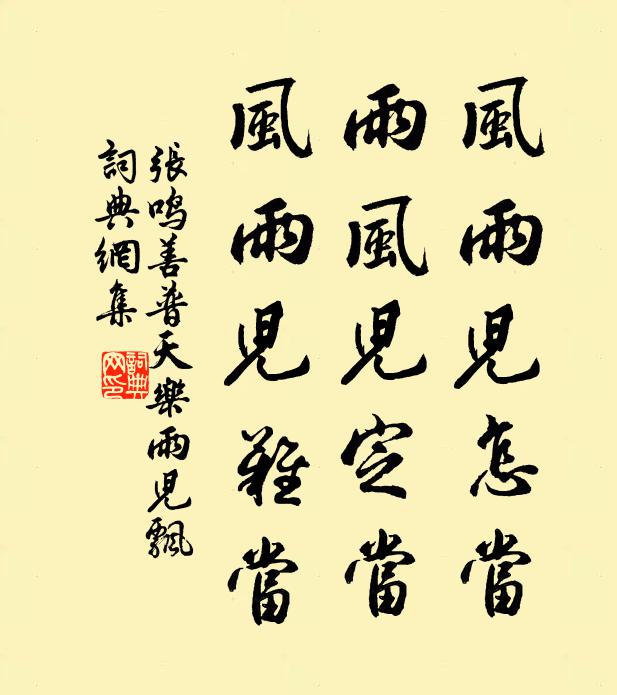 風雨兒怎當
雨風兒定當
風雨兒難當
張鳴善普天樂雨兒飄
詞典網集
詞典
网印